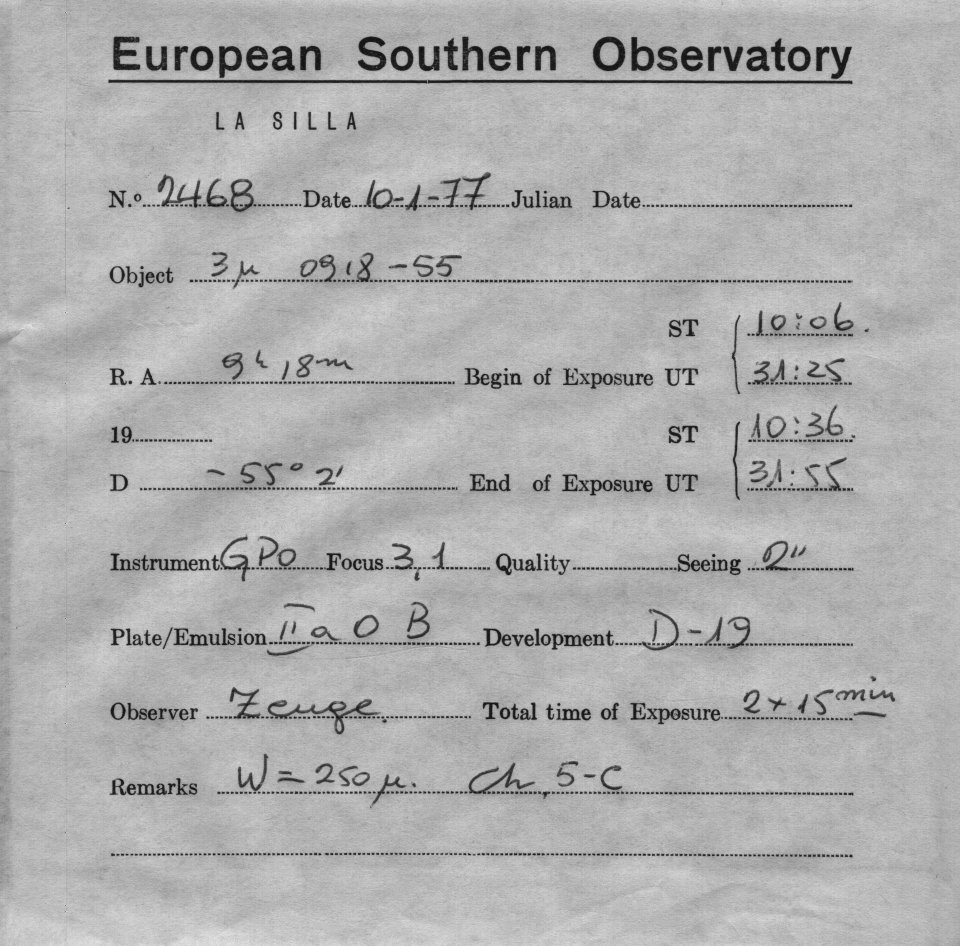 European Southern Observatory
LA SILLA
N.º 2468 Date 10-1-77 Julian Date
Object 3µ 0918 -55
ST 10:06.
R. A. 9h 18m Begin of Exposure UT 31:25
19 ST 10:36.
D -55° 2' End of Exposure UT 31:55
Instrument GPO Focus 3,1 Quality Seeing 2"
Plate/Emulsion IIa O B Development D-19
Observer Zeuge. Total time of Exposure 2 + 15 min
Remarks W = 250 µ. Ch, 5-C